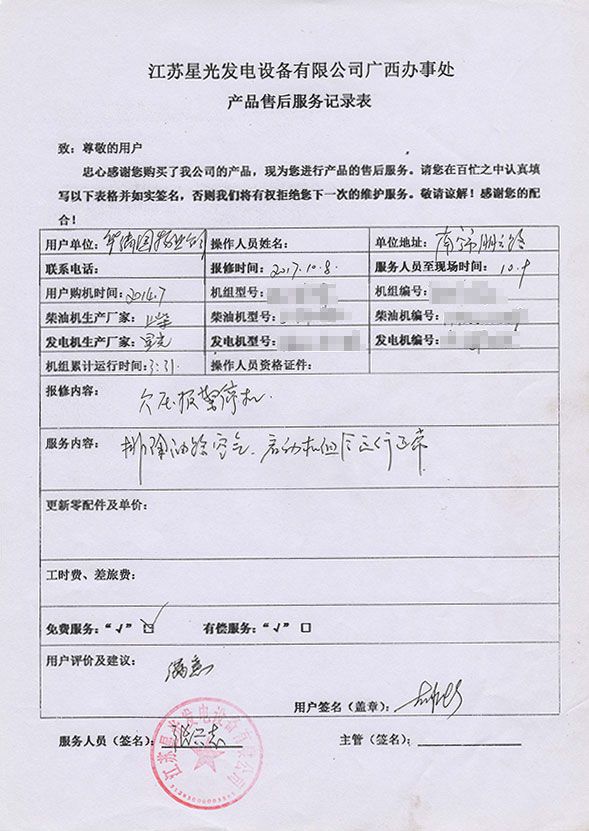 江苏星光发电设备有限公司广西办事处
产品售后服务记录表
致：尊敬的用户
忠心感谢您购买了我公司的产品，现为您进行产品的售后服务。请您在百忙之中认真填
写以下表格并如实签名，否则我们将有权拒绝您下一次的维护服务。敬请谅解！感谢您的配
合！
用户单位： 操作人员姓名： 单位地址：
联系电话： 报修时间：2017.10.8. 服务人员至现场时间：10.9
用户购机时间：2014.7 机组型号： 机组编号：
柴油机生产厂家：上柴 柴油机型号： 柴油机编号：
发电机生产厂家：星光 发电机型号： 发电机编号：
机组累计运行时间：3:31. 操作人员资格证件：
报修内容：
欠压报警停机.
服务内容：
排除油路空气.启动机组 运行正常
更新零配件及单价：
工时费、差旅费：
免费服务：“√” ☑ 有偿服务：“√” □
用户评价及建议：
满意
用户签名（盖章）：
服务人员（签名）： 主管（签名）：
江苏星光发电设备有限公司